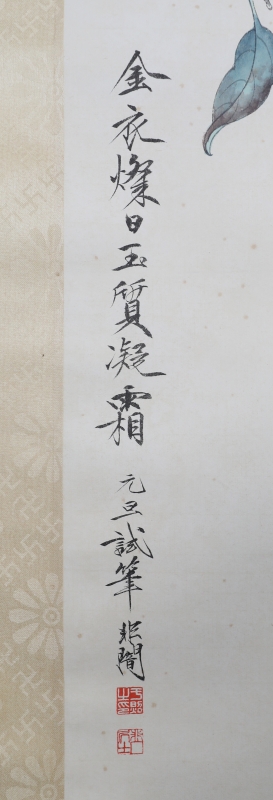 金衣燦日玉質凝霜
元旦試筆 非闇